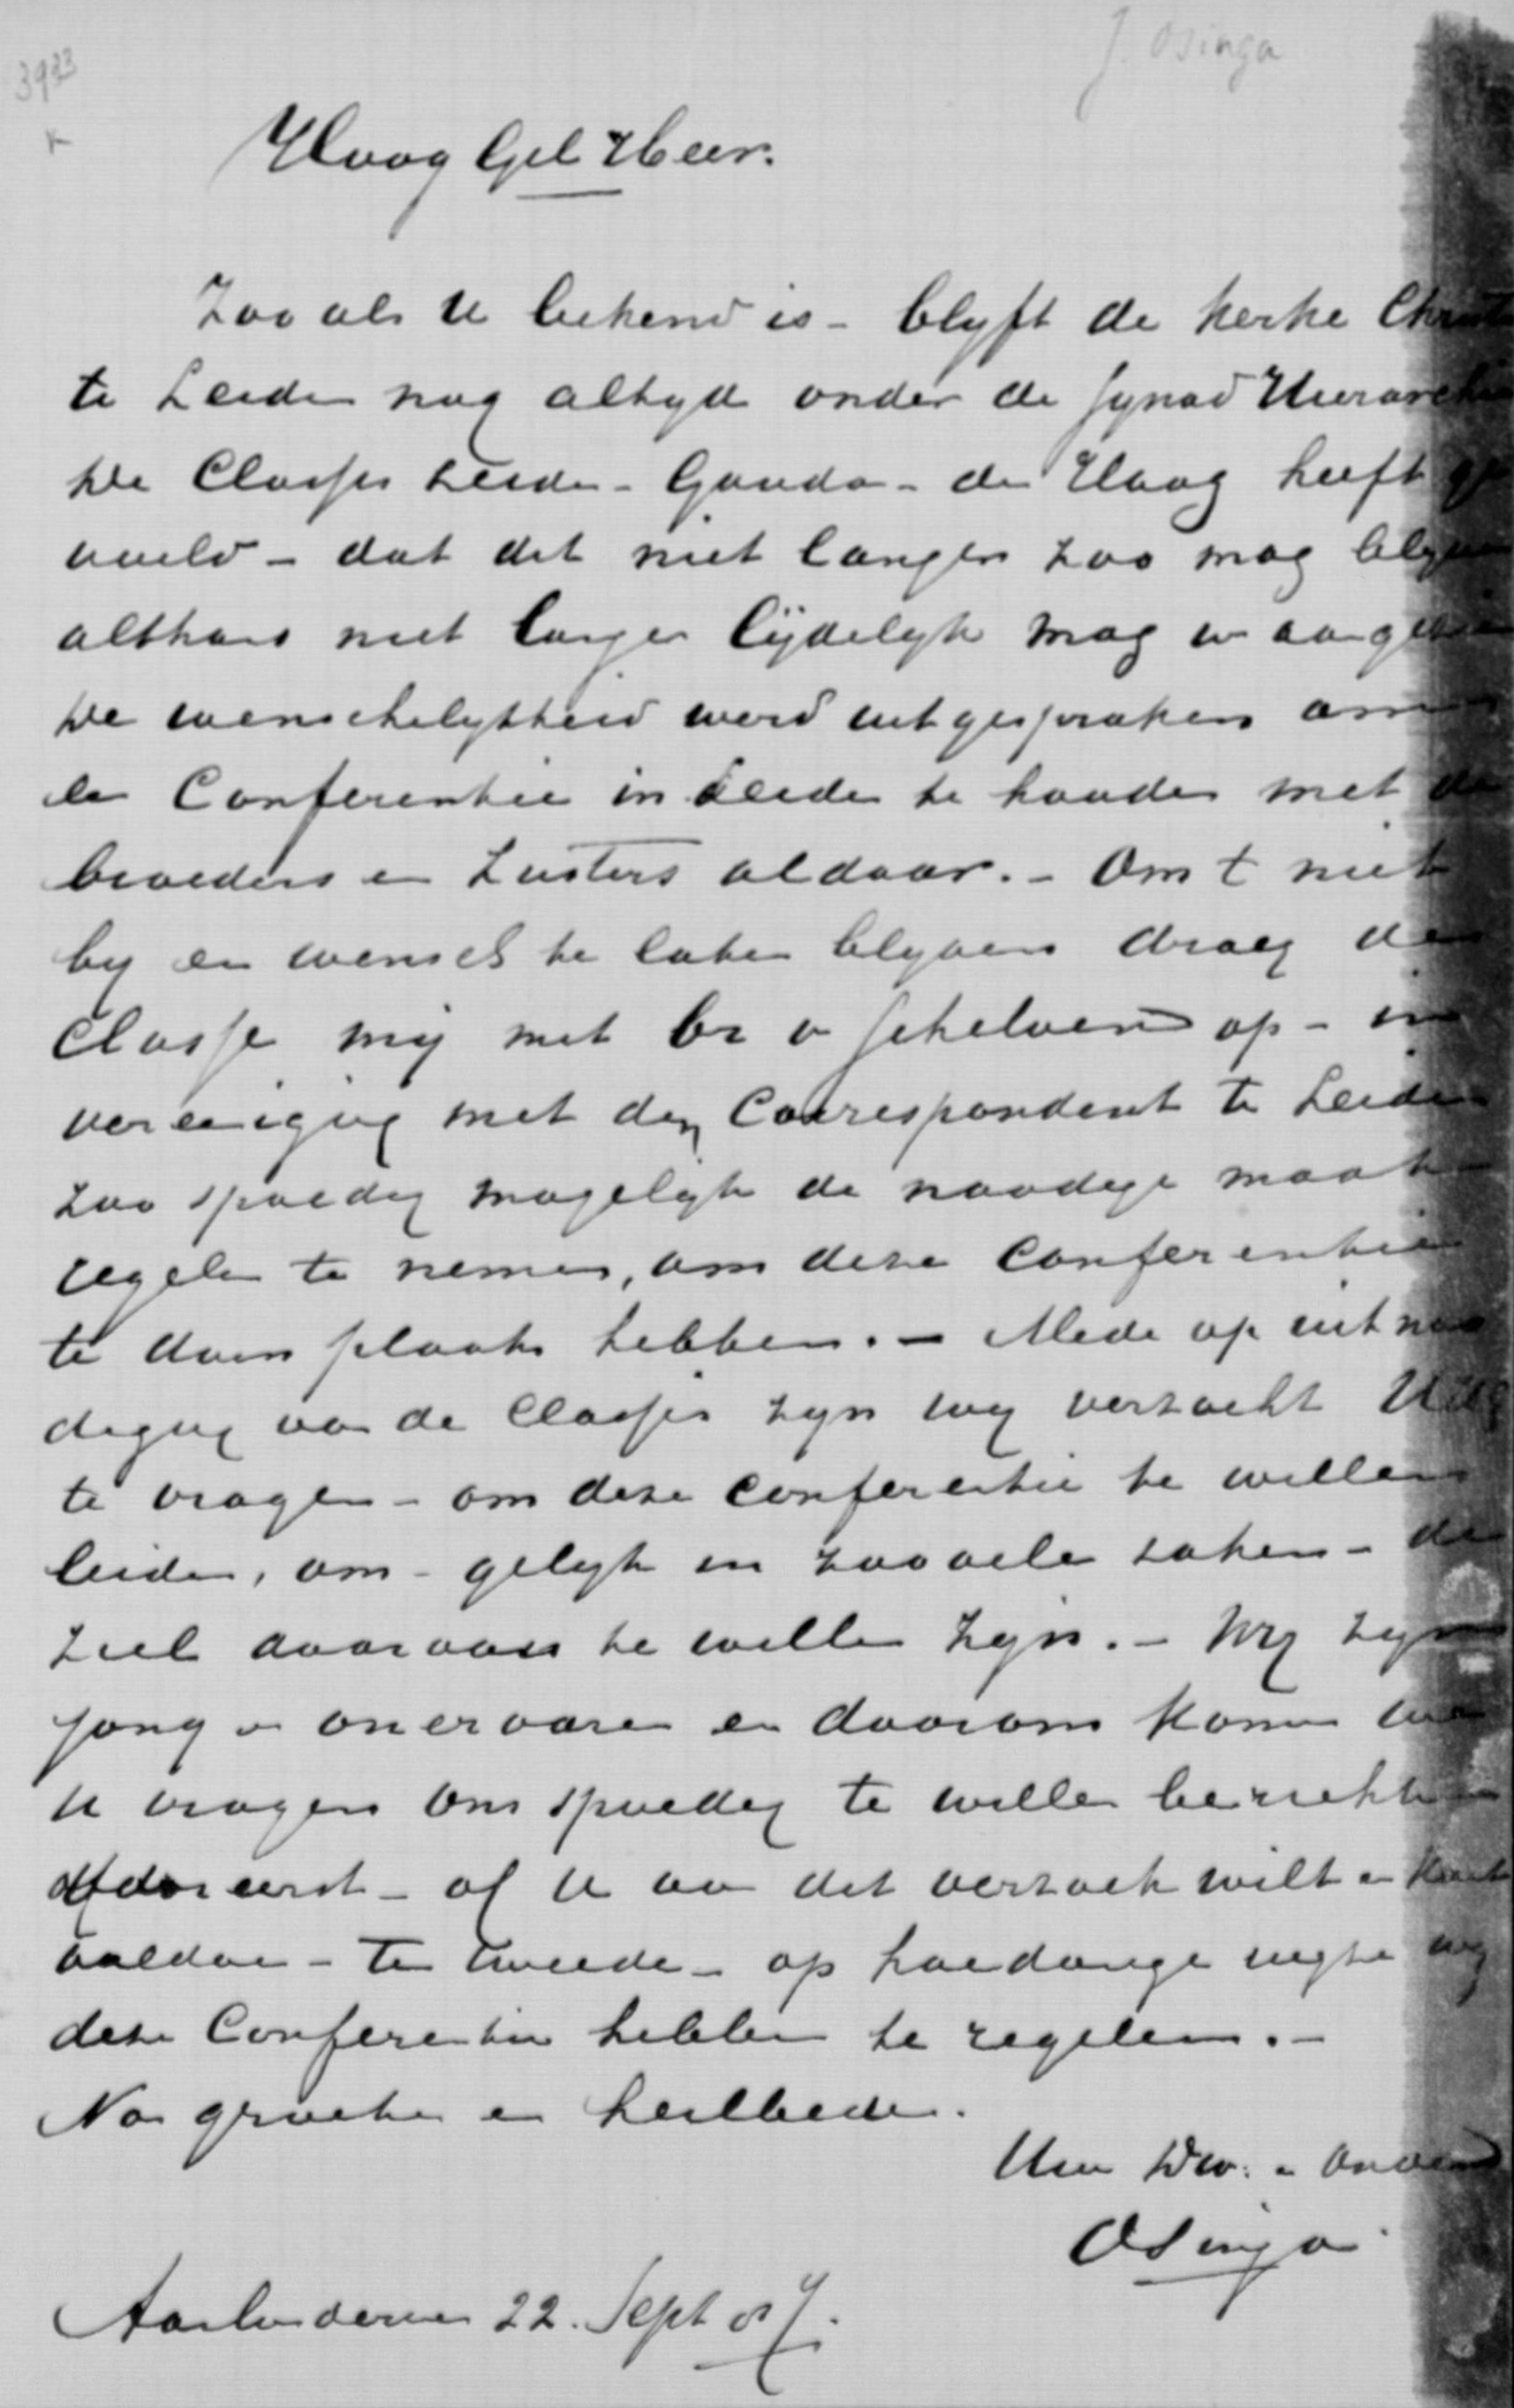 J. Osinga
3933
Hoog Gel Heer.
Zoo als U bekend is - blyft de kerke Christ
te Leiden nog altyd onder de Synod Hierarchie
De Classis Leiden - Gouda - den Haag heeft ge
voeld - dat dit niet langer zoo mag blyven
althans niet langer lijdelyk mag w aangezien
De wenschelykheid werd uitgesproken om
een Conferentie in Leiden te houden met de
broeders en Zusters aldaar. - Om t niet
by een wensch te laten blyven droeg de
Classe my met br v Schelven op - in
vereeniging met den Correspondent te Leiden
zoo spoedig mogelyk de noodige maat
regelen te nemen, om deze Conferentie
te doen plaats hebben. - Mede op uitnoo
diging van de Classis zyn wy verzocht U
te vragen - om deze Conferentie te willen
leiden, om - gelyk in zoovele zaken - de
ziel daarvan te willen zyn. - Wy zyn
jong en onervaren en daarom komen we
U vragen ons spoedig te willen berichten
eerst - of U aan dit verzoek wilt en kunt
voldoen - Ten tweede - op hoedanige wyze wy
deze Conferentie hebben te regelen. -
Na groeten en heilbede.
Uw Dw. en
Osinga
Aarlanderveen 22. Sept 87.